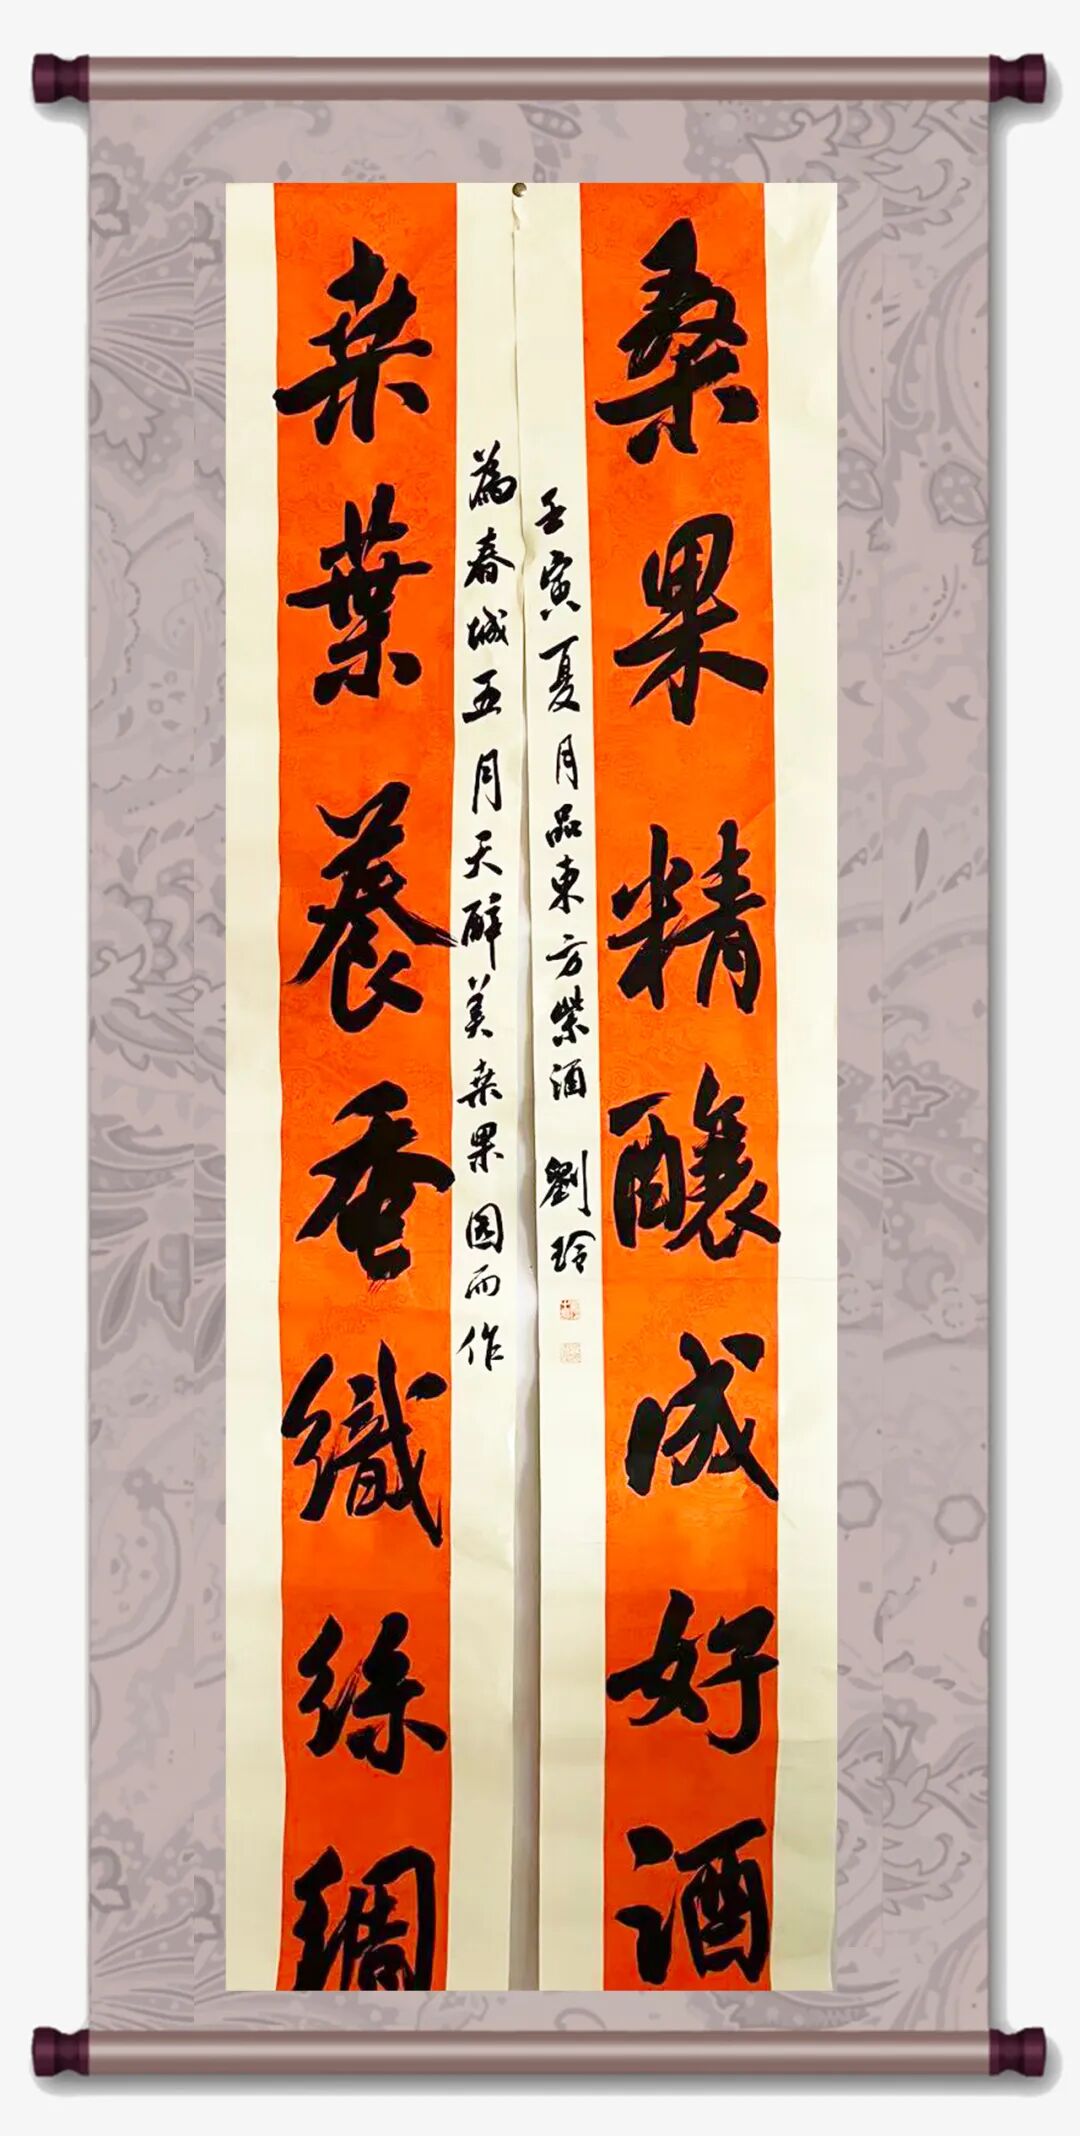 桑果精釀成好酒
壬寅夏月品東方紫酒 劉玲
為春城五月天醉美桒果因而作
桒葉養蚕織絲綢